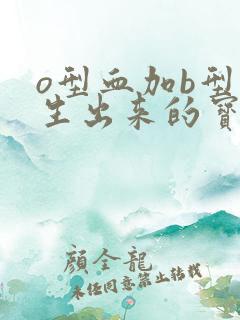 o型血加b型
生出来的宝
顏全龍
未经同意禁止转载